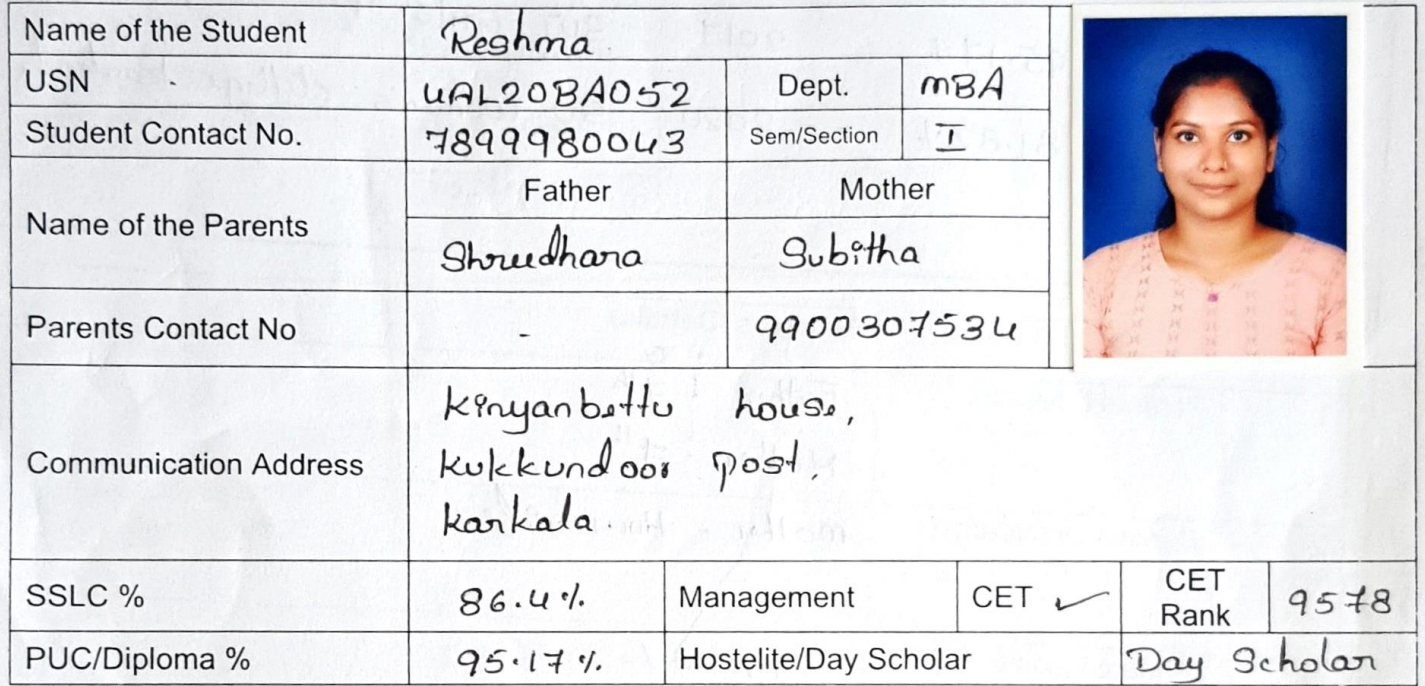 Name of the Student Reshma
USN 4AL20BA052 Dept. MBA
Student Contact No. 7899980043 Sem/Section I
Name of the Parents
Father Mother
Shreedhara Subitha
Parents Contact No - 9900307534
Communication Address
Kinyanbettu house,
Kukkundoor post.
Karkala.
SSLC % 86.4% Management CET ✓ CET Rank 9578
PUC/Diploma % 95.17% Hostelite/Day Scholar Day Scholar